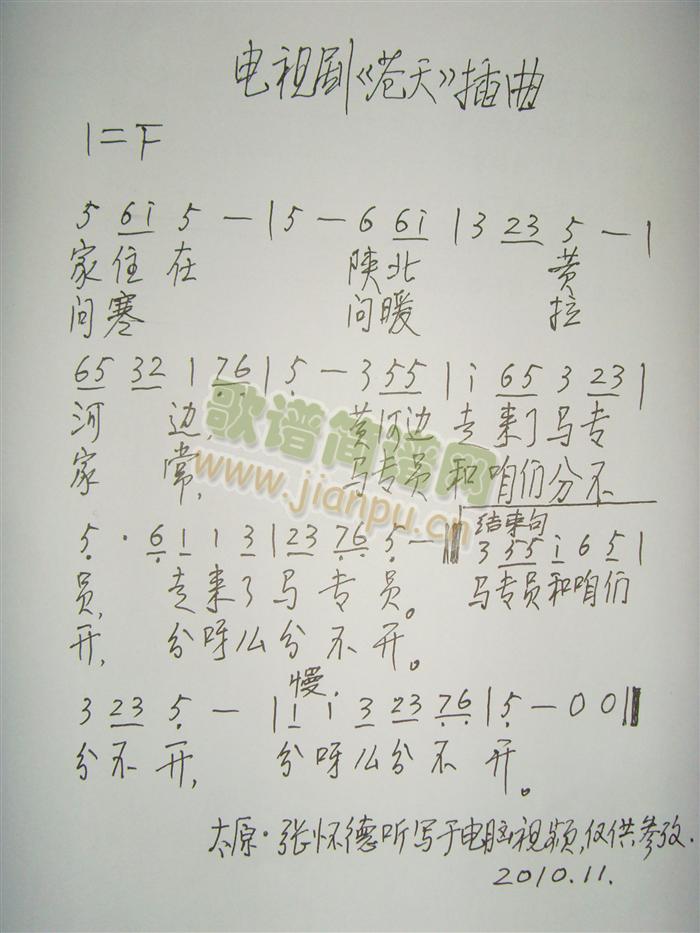 电视剧《苍天》插曲
1=F
5 6i 5 — | 5 — 6 6i | 3 23 5 — |
家住在 陕北 黄
问寒 问暖 拉
65 32 1 76 | 5 — 3 55 | i 65 3 23 |
河 边, 黄河边 走来了马专
家 常, 马专员和咱们分不
歌谱简谱网
www.jianpu.cn
结束句
5 · 6 1 1 3 | 23 76 5 — 3 55 i 6 5 |
员, 走来了马专员。 马专员和咱们
开, 分呀么分不开。
慢
3 23 5 — | i i 3 23 76 | 5 — 0 0
分不开, 分呀么分不开。
太原·张怀德听写于电脑视频,仅供参考.
2010.11.